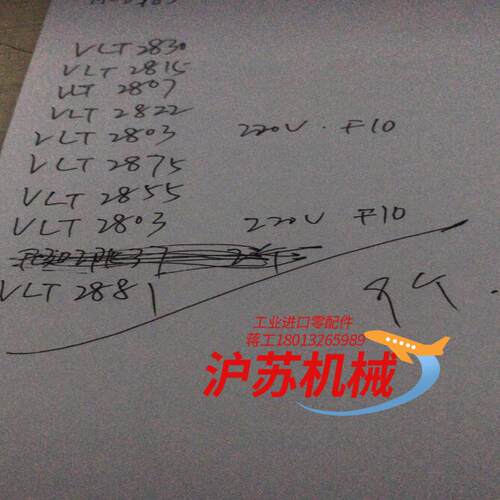 VLT 2830
VLT 2815
VLT 2807
VLT 2822
VLT 2803 220V. F10
VLT 2875
VLT 2855
VLT 2803 220V F10
VLT 2881
9个.
工业进口零配件
蒋工18013265989
沪苏机械